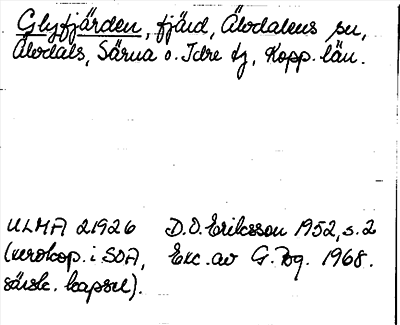 Glyfjärden, fjärd, Älvdalens sn,
Älvdals, Särna o. Idre tg, Kopp. län.
ULMA 21926 D.O. Eriksson 1952, s. 2
(xerokop. i SOA, Exc. av G. Bg. 1968.
särsk. kapsel).